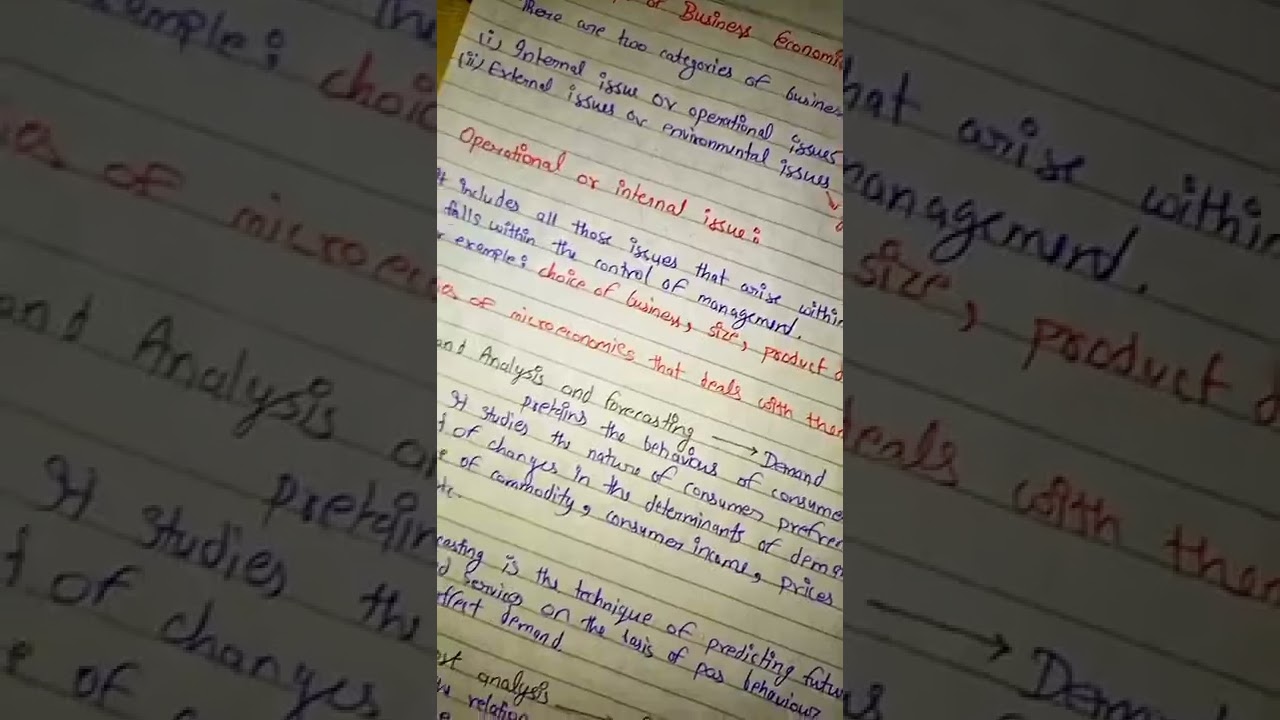 of Business Economi
There are two categories of busines
(i) Internal issue or operational issues
(ii) External issues or environmental issues
Operational or internal issue:
It includes all those issues that arise within
falls within the control of management.
example: choice of business, size, product d
es of microeconomics that deals with them
and Analysis and forecasting → Demand
pretains the behaviour of consume
It studies the nature of consumer prefren
t of changes in the determinants of dema
e of commodity, consumer income, prices
etc.
casting is the technique of predicting futur
d service on the basis of pas behaviour
ffect demand.
st analysis →
relation